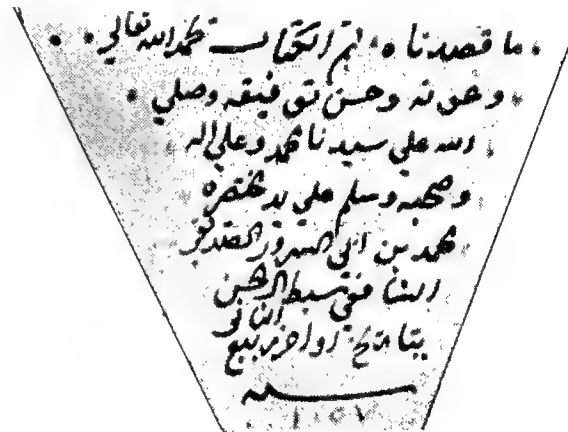 ما قصدنا ۰ تم الكتاب بحمد الله تعالي
وعونه وحسن توفيقه وصلي
الله علي سيدنا محمد وعلي اله
وصحبه وسلم علي يد مختصره
محمد بن ابي السرور الصديقي
الشافعي سبط ال الحسن
بتاريخ اواخر ربيع الثاني
سنه
١٠٥٧